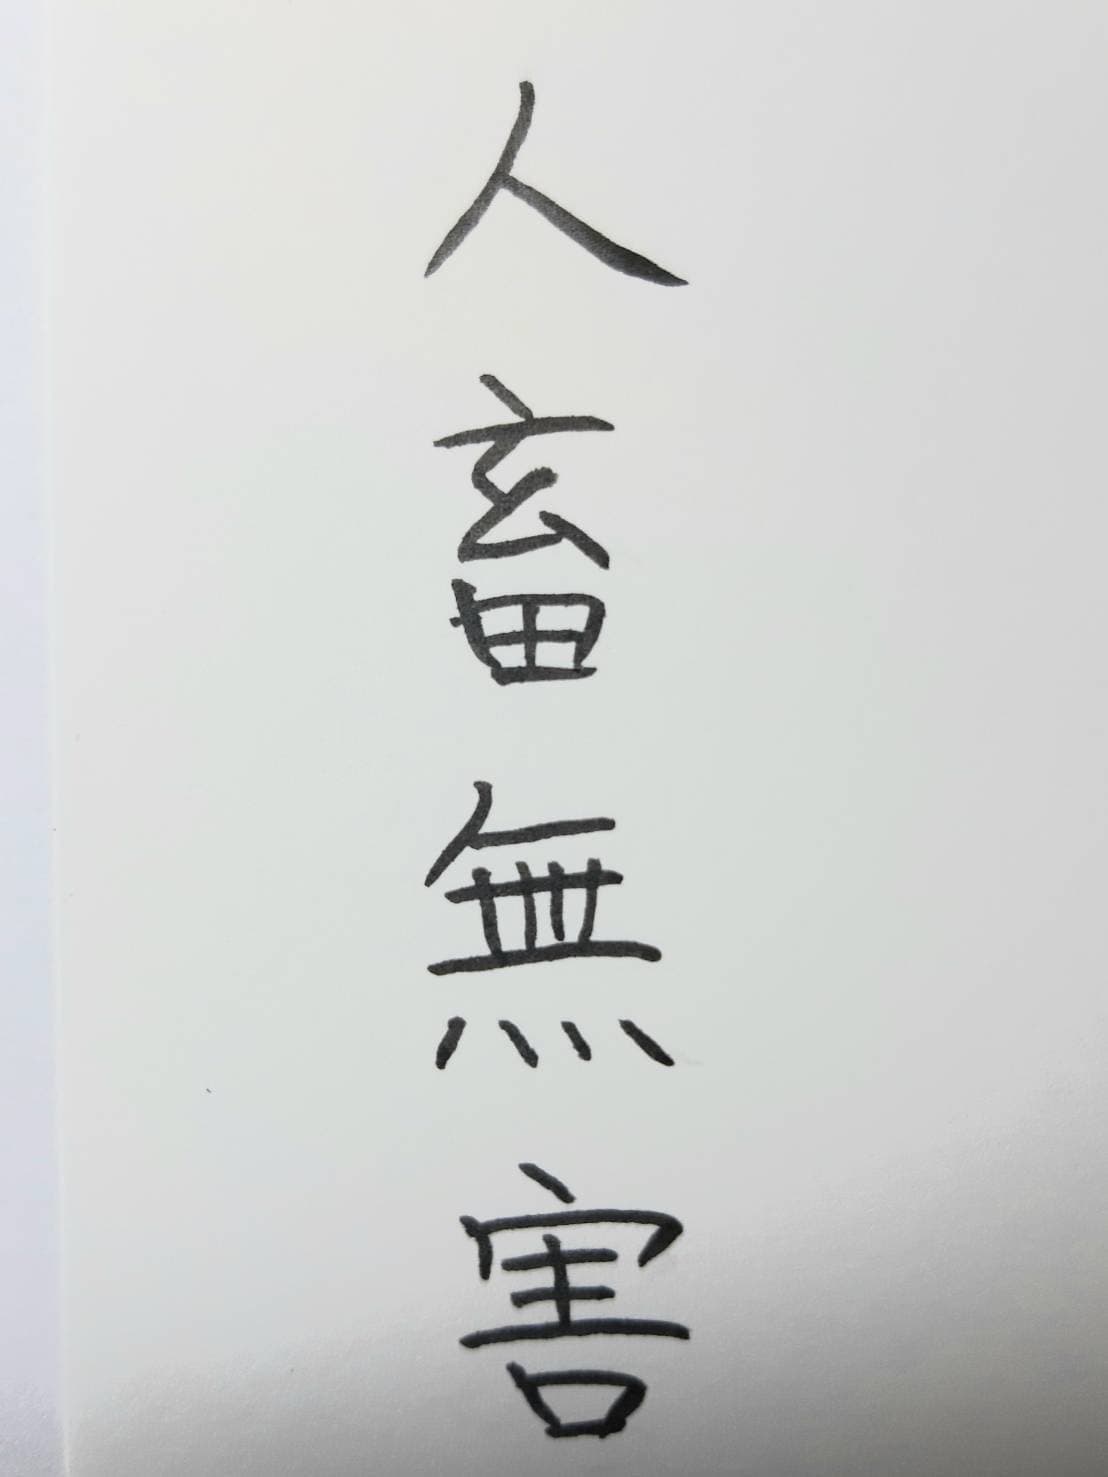 人畜無害